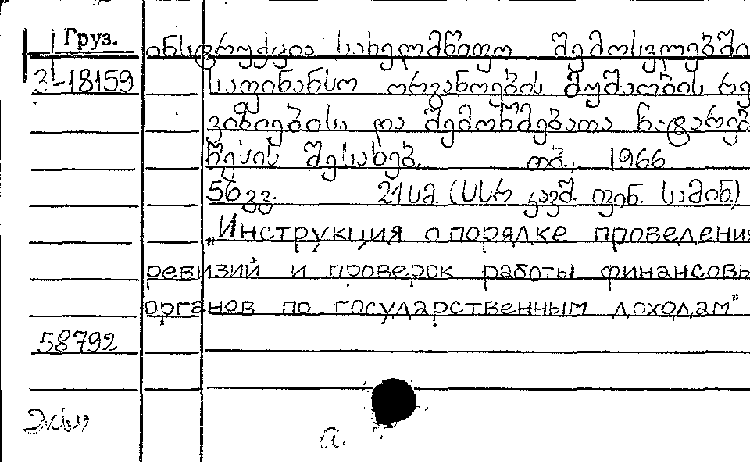 Груз.
ინსტრუქცია სახელმწიფო შემოსვლებში
3-18159 საფინანსო ორგანოების მუშაობის რე
ვიზიებისა და შემოწმებათა ჩატარებ
წესის შესახებ. თბ., 1966
56 გვ. 21სმ (სსრ კავშ. ფინ. სამინ)
„Инструкция о порядке проведени
ревизий и проверок работы финансовы
органов по государственным доходам"
58792